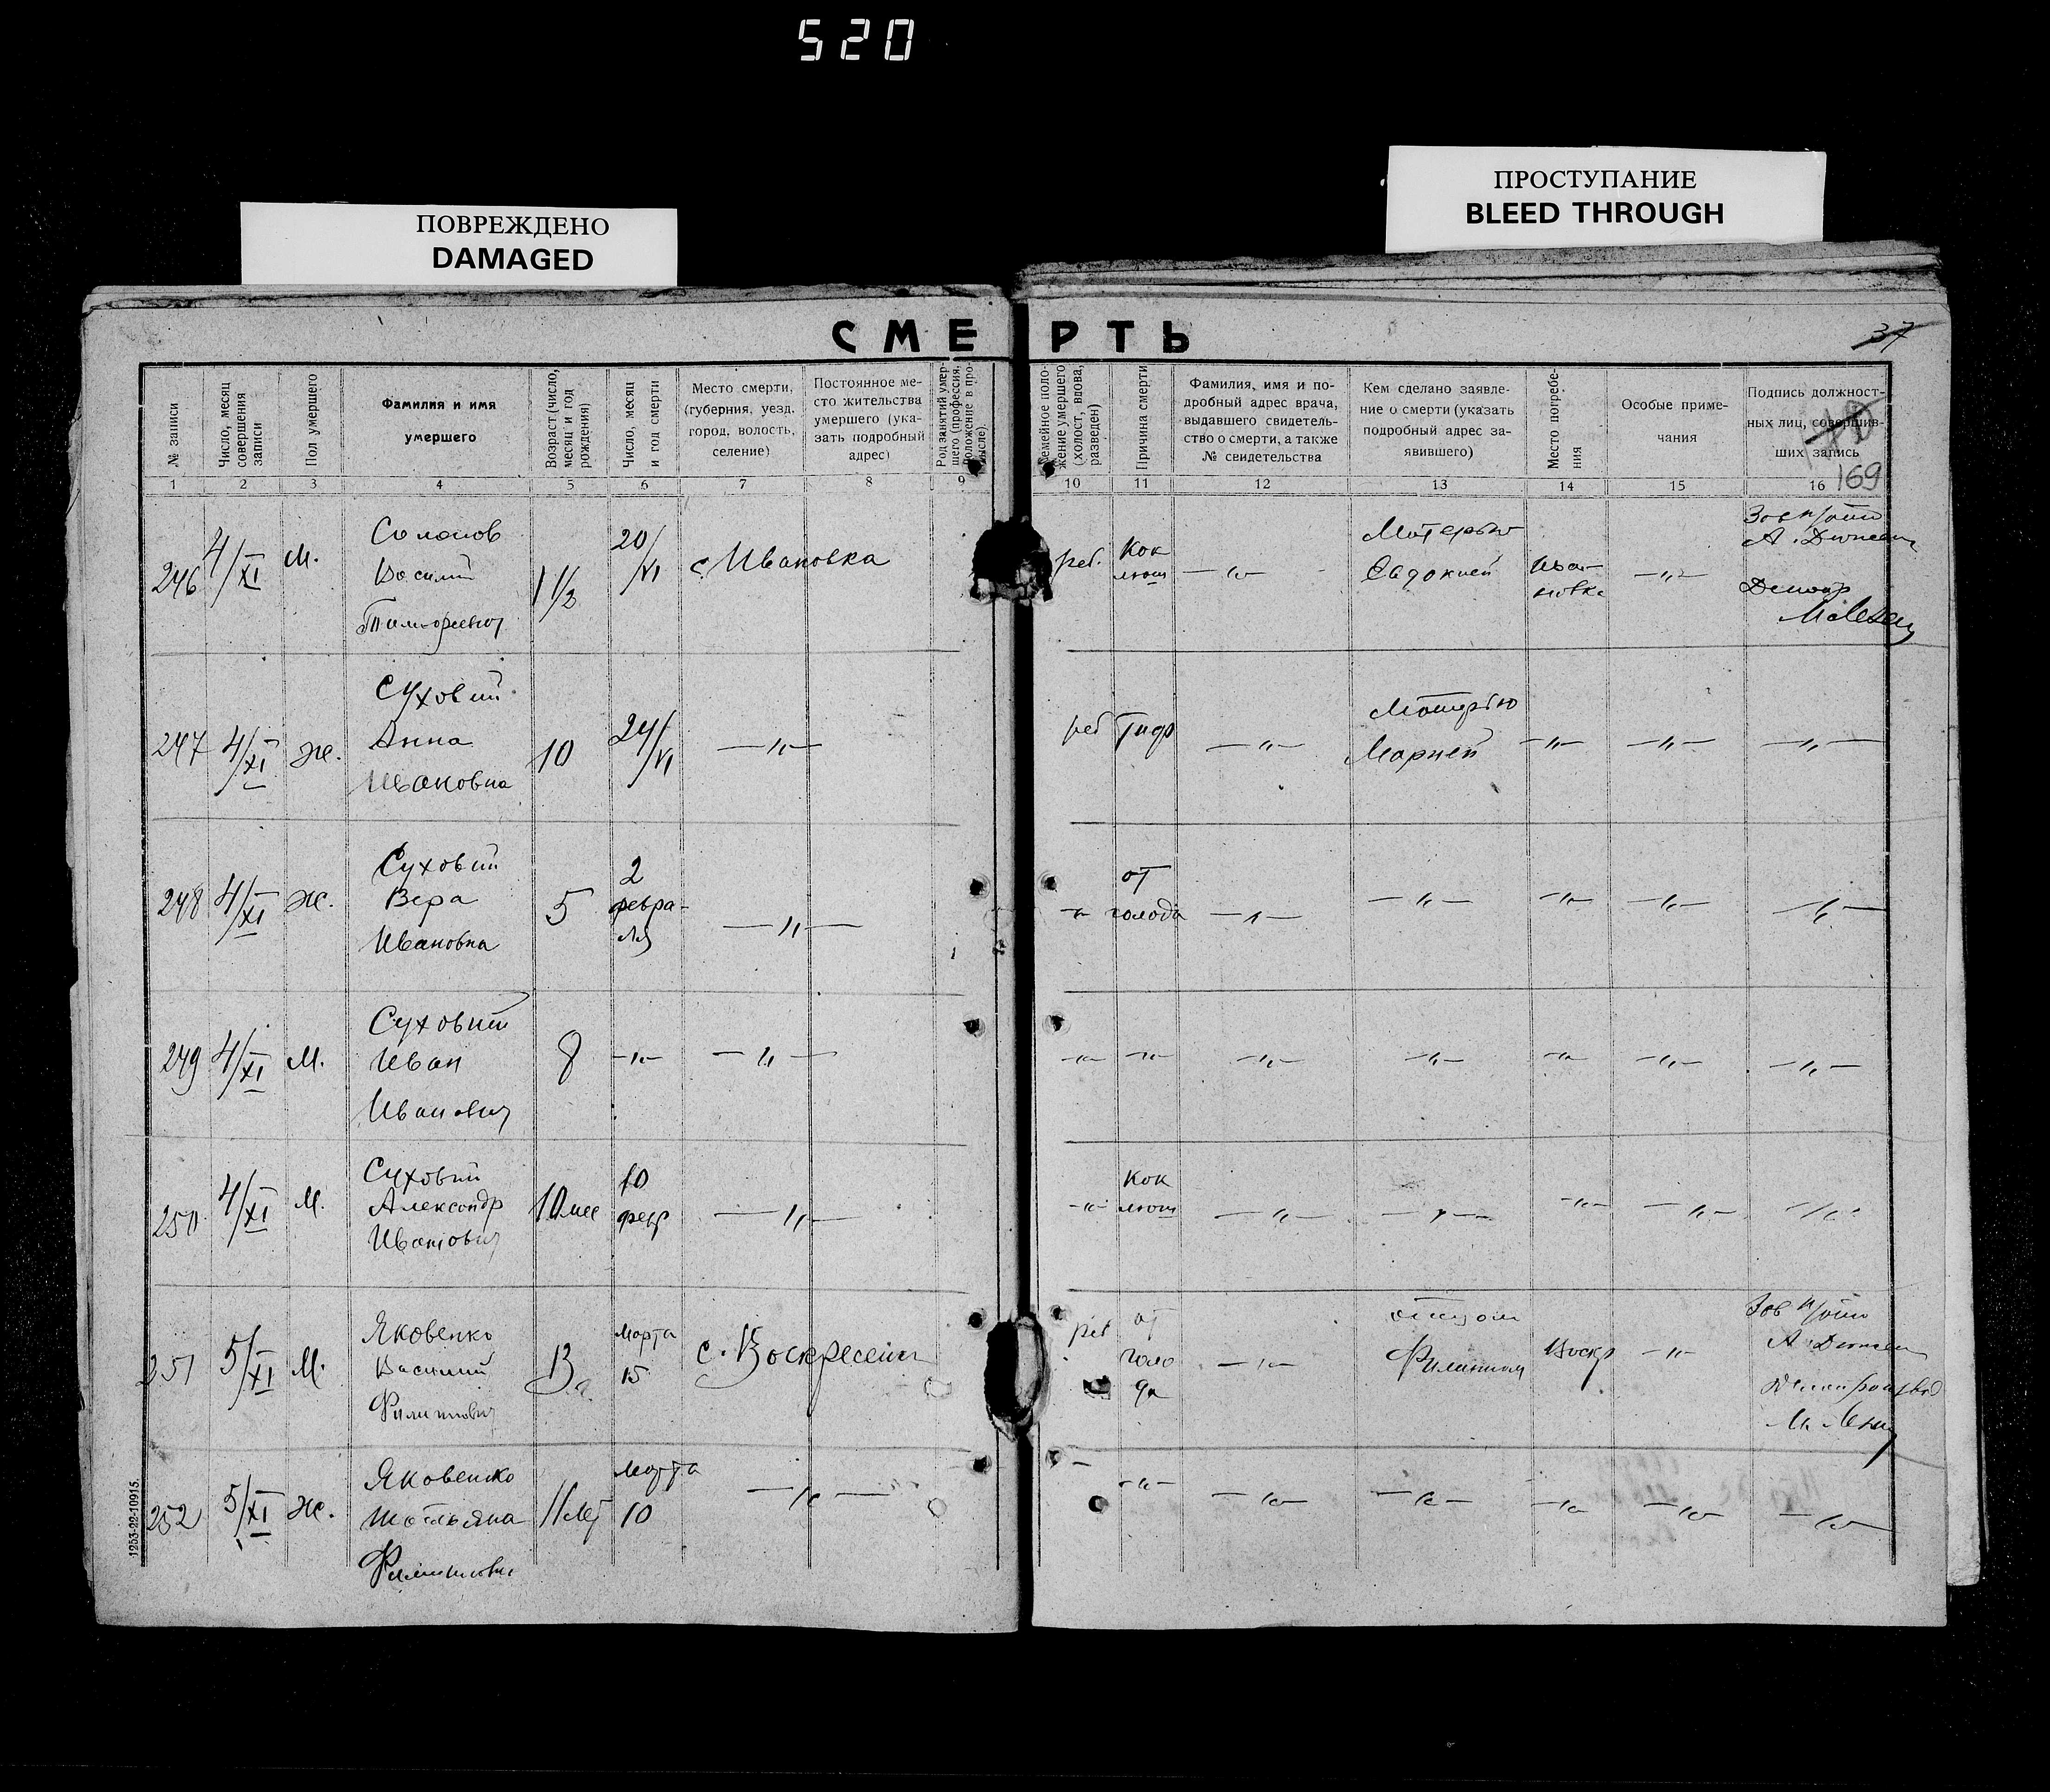 520
ПОВРЕЖДЕНО
DAMAGED
ПРОСТУПАНИЕ
BLEED THROUGH
СМЕРТЬ
37
№ записи
Число, месяц совершения записи
Пол умершего
Фамилия и имя умершего
Возраст (число, месяц и год рождения)
Число, месяц и год смерти
Место смерти, (губерния, уезд, город, волость, селение)
Постоянное место жительства умершего (указать подробный адрес)
Род занятий умершего (профессия, положение в промысле).
Семейное положение умершего (холост, вдова, разведен)
Причина смерти
Фамилия, имя и подробный адрес врача, выдавшего свидетельство о смерти, а также № свидетельства
Кем сделано заявление о смерти (указать подробный адрес заявившего)
Место погребения
Особые примечания
Подпись должностных лиц, совершивших запись
169
1 2 3 4 5 6 7 8 9 10 11 12 13 14 15 16
246 4/XI М.
Василий
Тимофеевич
1 1/2 20/VI с. Ивановка
реб. Кок
люш -"- Матерью
Евдокией Ива-
новка -"-
247 4/XI Ж. Суховий
Анна
Ивановна
10 24/VI -"-
реб Тиф -"- Матерью
Марией -"- -"- -"-
248 4/XI Ж. Суховий
Вера
Ивановна
5 2
февра-
ля -"-
-"- от
голода -"- -"- -"- -"- -"-
249 4/XI М. Суховий
Иван
Иванович
8 -"- -"-
-"- -"- -"- -"- -"- -"- -"-
250 4/XI М. Суховий
Александр
Иванович
10 мес 10
февр -"-
-"- Кок
люш -"- -"- -"- -"- -"-
251 5/XI М. Яковенко
Василий
Филиппович
марта
15 с. Воскресенка
реб от
голо
да -"- отцом
Филиппом Воскр -"-
252 5/XI Ж. Яковенко
Татьяна
Филипповна
11 лет марта
10 -"-
-"- -"- -"- -"- -"- -"-
1253-22-10915.